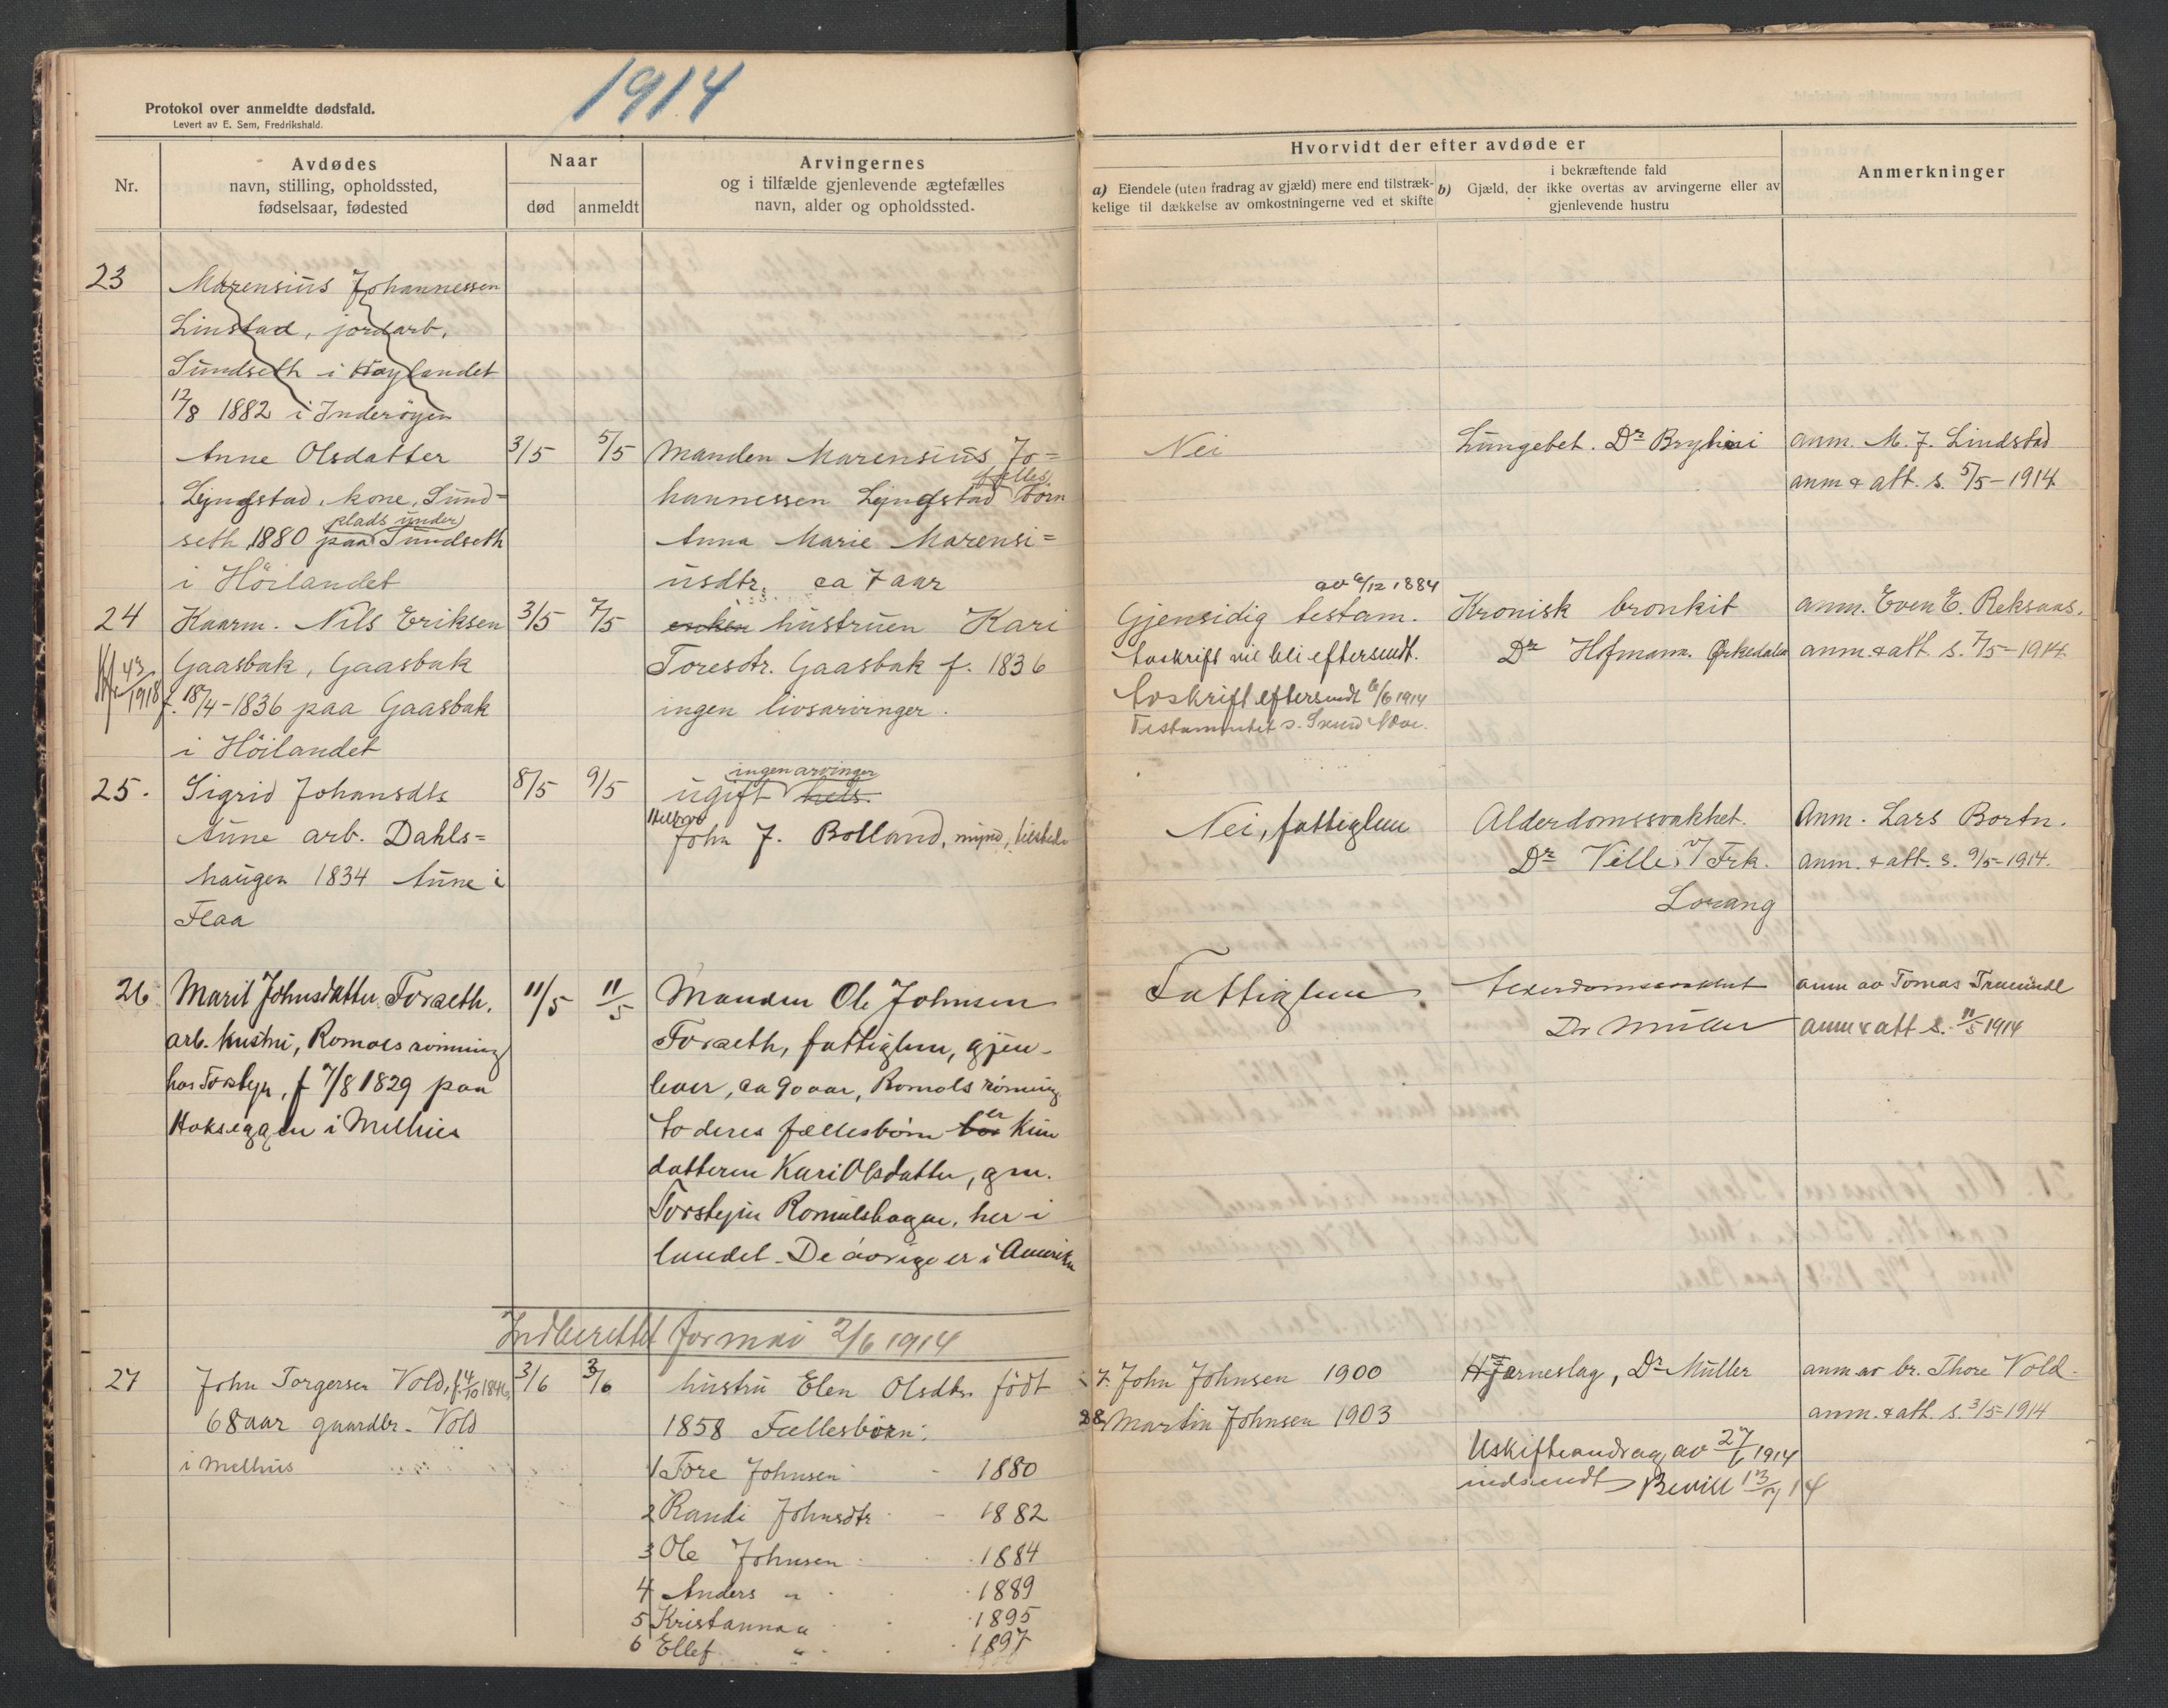 1914
Protokol over anmeldte dødsfald.
Levert av E. Sem, Fredrikshald.
Nr.
Avdødes
navn, stilling, opholdssted,
fødselsaar, fødested
Naar
død
anmeldt
Arvingernes
og i tilfælde gjenlevende ægtefælles
navn, alder og opholdssted.
Hvorvidt der efter avdøde er
a) Eiendele (uten fradrag av gjæld) mere end tilstræk-
kelige til dækkelse av omkostningerne ved et skifte
i bekræftende fald
b) Gjæld, der ikke overtas av arvingerne eller av
gjenlevende hustru
Anmerkninger
23
Marensius Johannessen
Linstad, jordarb,
Sundseth i Høylandet
12/8 1882 i Inderøyen
Anne Olsdatter
Lyngstad, kone, Sund=
plads under
seth, 1880 paa Sundseth
i Höilandet
3/5
5/5
Manden Marensius Jo=
fælles
hannessen Lyngstad børn
Anna Marie Marensi=
usdtr. ca 7 aar
Nei
Lungebet. Dr
anm. M. J. Lindstad
anm & att. s. 5/5-1914
24
43/1918
Kaarm. Nils Eriksen
Gaasbak, Gaasbak
f. 18/4-1836 paa Gaasbak
i Höilandet
3/5
7/5
enken hustruen Kari
Toresdtr. Gaasbak f. 1836
ingen livsarvinger.
av 6/12 1884
Gjensidig testam.
Avskrift vil bli eftersendt.
Avskrift eftersendt 6/6 1914
Testamentet s.
Kronisk bronkit
Dr Hofmann. Ørkedalen
anm. Even E. Reksaas.
anm. & att. s. 7/5-1914
25.
Sigrid Johansdtr
Aune arb. Dahls=
haugen 1834 Aune i
Flaa
8/5
9/5
ingen arvinger
ugift hels.
John J. Bolland, mynd,
Nei, fattiglem
Alderdomssvakhet.
Dr Ville, v/ Frk.
Lorang
Anm. Lars Bortn.
anm. & att. s. 9/5-1914.
26
Marit Johnsdatter Foraeth.
arb. hustru, Romols rönning
hos Torstejn, f 7/8 1829 paa
Hokseggen i Melhus
11/5
11/5
Manden Ole Johnsen
Foraeth, fattiglem, gjen-
lever, ca 90 aar, Romols rönning
er
to deres fællesbörn bor kun
datteren Kari Olsdatter, gm.
Torstejn Romulshagen, her i
landet. De övrige er i Amerika
Fattiglem
Alderdomssvakhet
Dr Müller
anm av Tomas
anm & att s. 11/5 1914
Indberettet for mai 2/6 1914
27
John Torgersen Vold, f. 4/10 1846,
68 aar gaardbr. Vold
i Melhus
3/6
3/6
hustru Elen Olsdtr. födt
1858 Fællesbörn:
1 Tore Johnsen - 1880
2 Randi Johnsdtr - 1882
3 Ole Johnsen 1884
4 Anders " 1889
5 Kristanna " 1895
6 Ellef " 1897
7. John Johnsen 1900
8 Martin Johnsen 1903
Hjærneslag, Dr Müller
Uskifteandrag av 27/6 1914
indsendt Bevill 13/7 14
anm av br. Thore Vold.
anm. & att. s. 3/5-1914